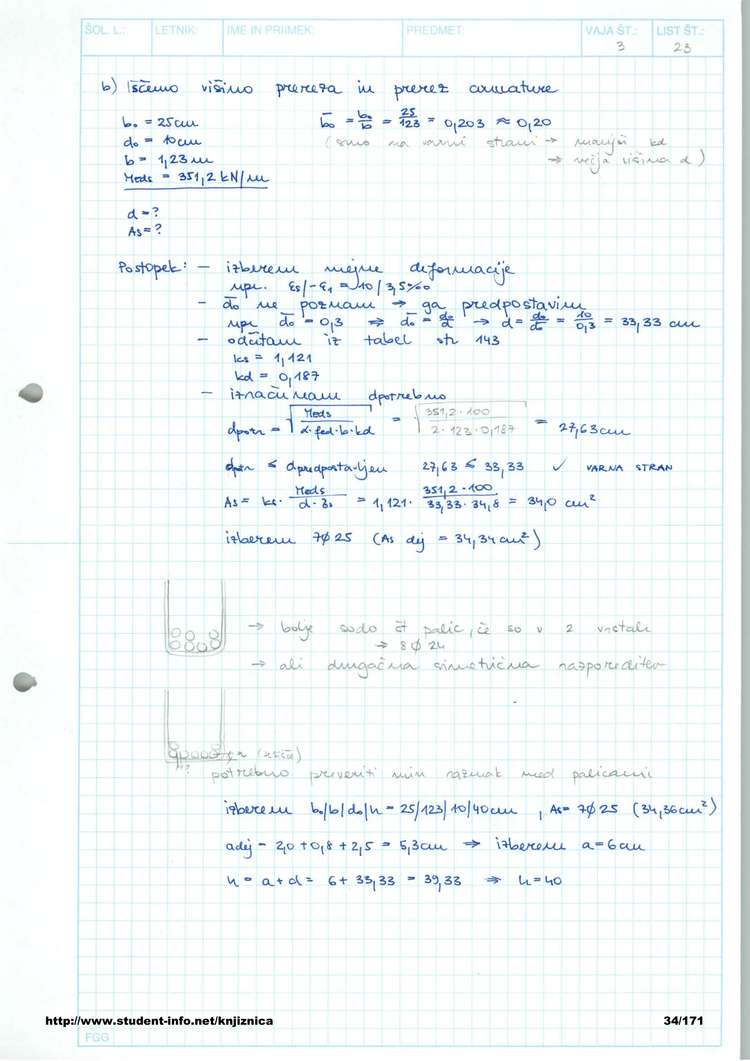 ŠOL. L.: LETNIK: IME IN PRIIMEK: PREDMET: VAJA ŠT.: 3 LIST ŠT.: 23
b) Iščemo višino prereza in prerez armature
b₀ = 25 cm b̄₀ = b₀/b = 25/123 = 0,203 ≈ 0,20
d₀ = 10 cm (smo na varni strani → manjši kd
b = 1,23 m → večja višina d)
Meds = 351,2 kN/m
d = ?
As = ?
Postopek: – izberem mejne deformacije
npr. εs/-ε₁ = 10/3,5‰
– d̄₀ ne poznam → ga predpostavim
npr d̄₀ = 0,3 ⇒ d̄₀ = d₀/d → d = d₀/d̄₀ = 10/0,3 = 33,33 cm
– odčitam iz tabel str 143
ks = 1,121
kd = 0,187
– izračunam dpotrebno
dpotr = √(Meds/(α·fcd·b·kd)) = √(351,2·100/(2·123·0,187)) = 27,63 cm
dpotr ≤ dpredpostavljen 27,63 ≤ 33,33 ✓ VARNA STRAN
As = ks · Meds/(d·fs) = 1,121 · 351,2·100/(33,33·34,8) = 34,0 cm²
izberem 7ϕ25 (As dej = 34,34 cm²)
→ bolje sodo št palic, če so v 2 vrstah
→ 8ϕ24
→ ali drugačna simetrična razporeditev
potrebno preveriti min razmak med palicami
izberem b₀/b/d₀/h = 25/123/10/40 cm, As = 7ϕ25 (34,36 cm²)
adej = 2,0 + 0,8 + 2,5 = 5,3 cm ⇒ izberem a = 6 cm
h = a + d = 6 + 33,33 = 39,33 ⇒ h = 40
http://www.student-info.net/knjiznica 34/171
FGG